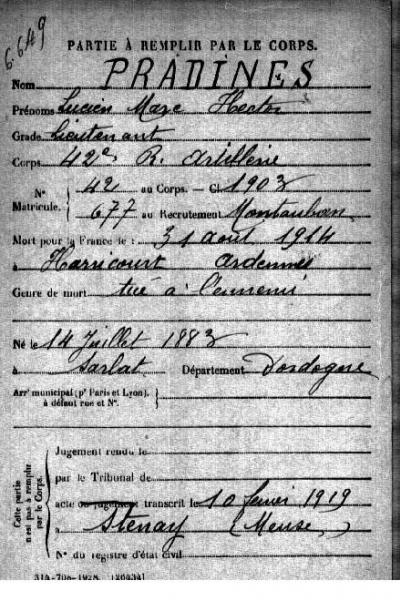 6-649
PARTIE À REMPLIR PAR LE CORPS.
Nom PRADINES
Prénoms Lucien Marc Hector
Grade Lieutenant
Corps 42e R. Artillerie
N° 42 au Corps. — Cl. 1903
Matricule. 677 au Recrutement Montauban
Mort pour la France le : 31 août 1914
à Harricourt Ardennes
Genre de mort tué à l'ennemi
Né le 14 Juillet 1883
à Sarlat Département Dordogne
Arrt municipal (pr Paris et Lyon),
à défaut rue et N°.
Cette partie n'est pas à remplir par le Corps.
Jugement rendu le
par le Tribunal de
acte ou jugement transcrit le 10 février 1919
à Stenay (Meuse)
N° du registre d'état civil